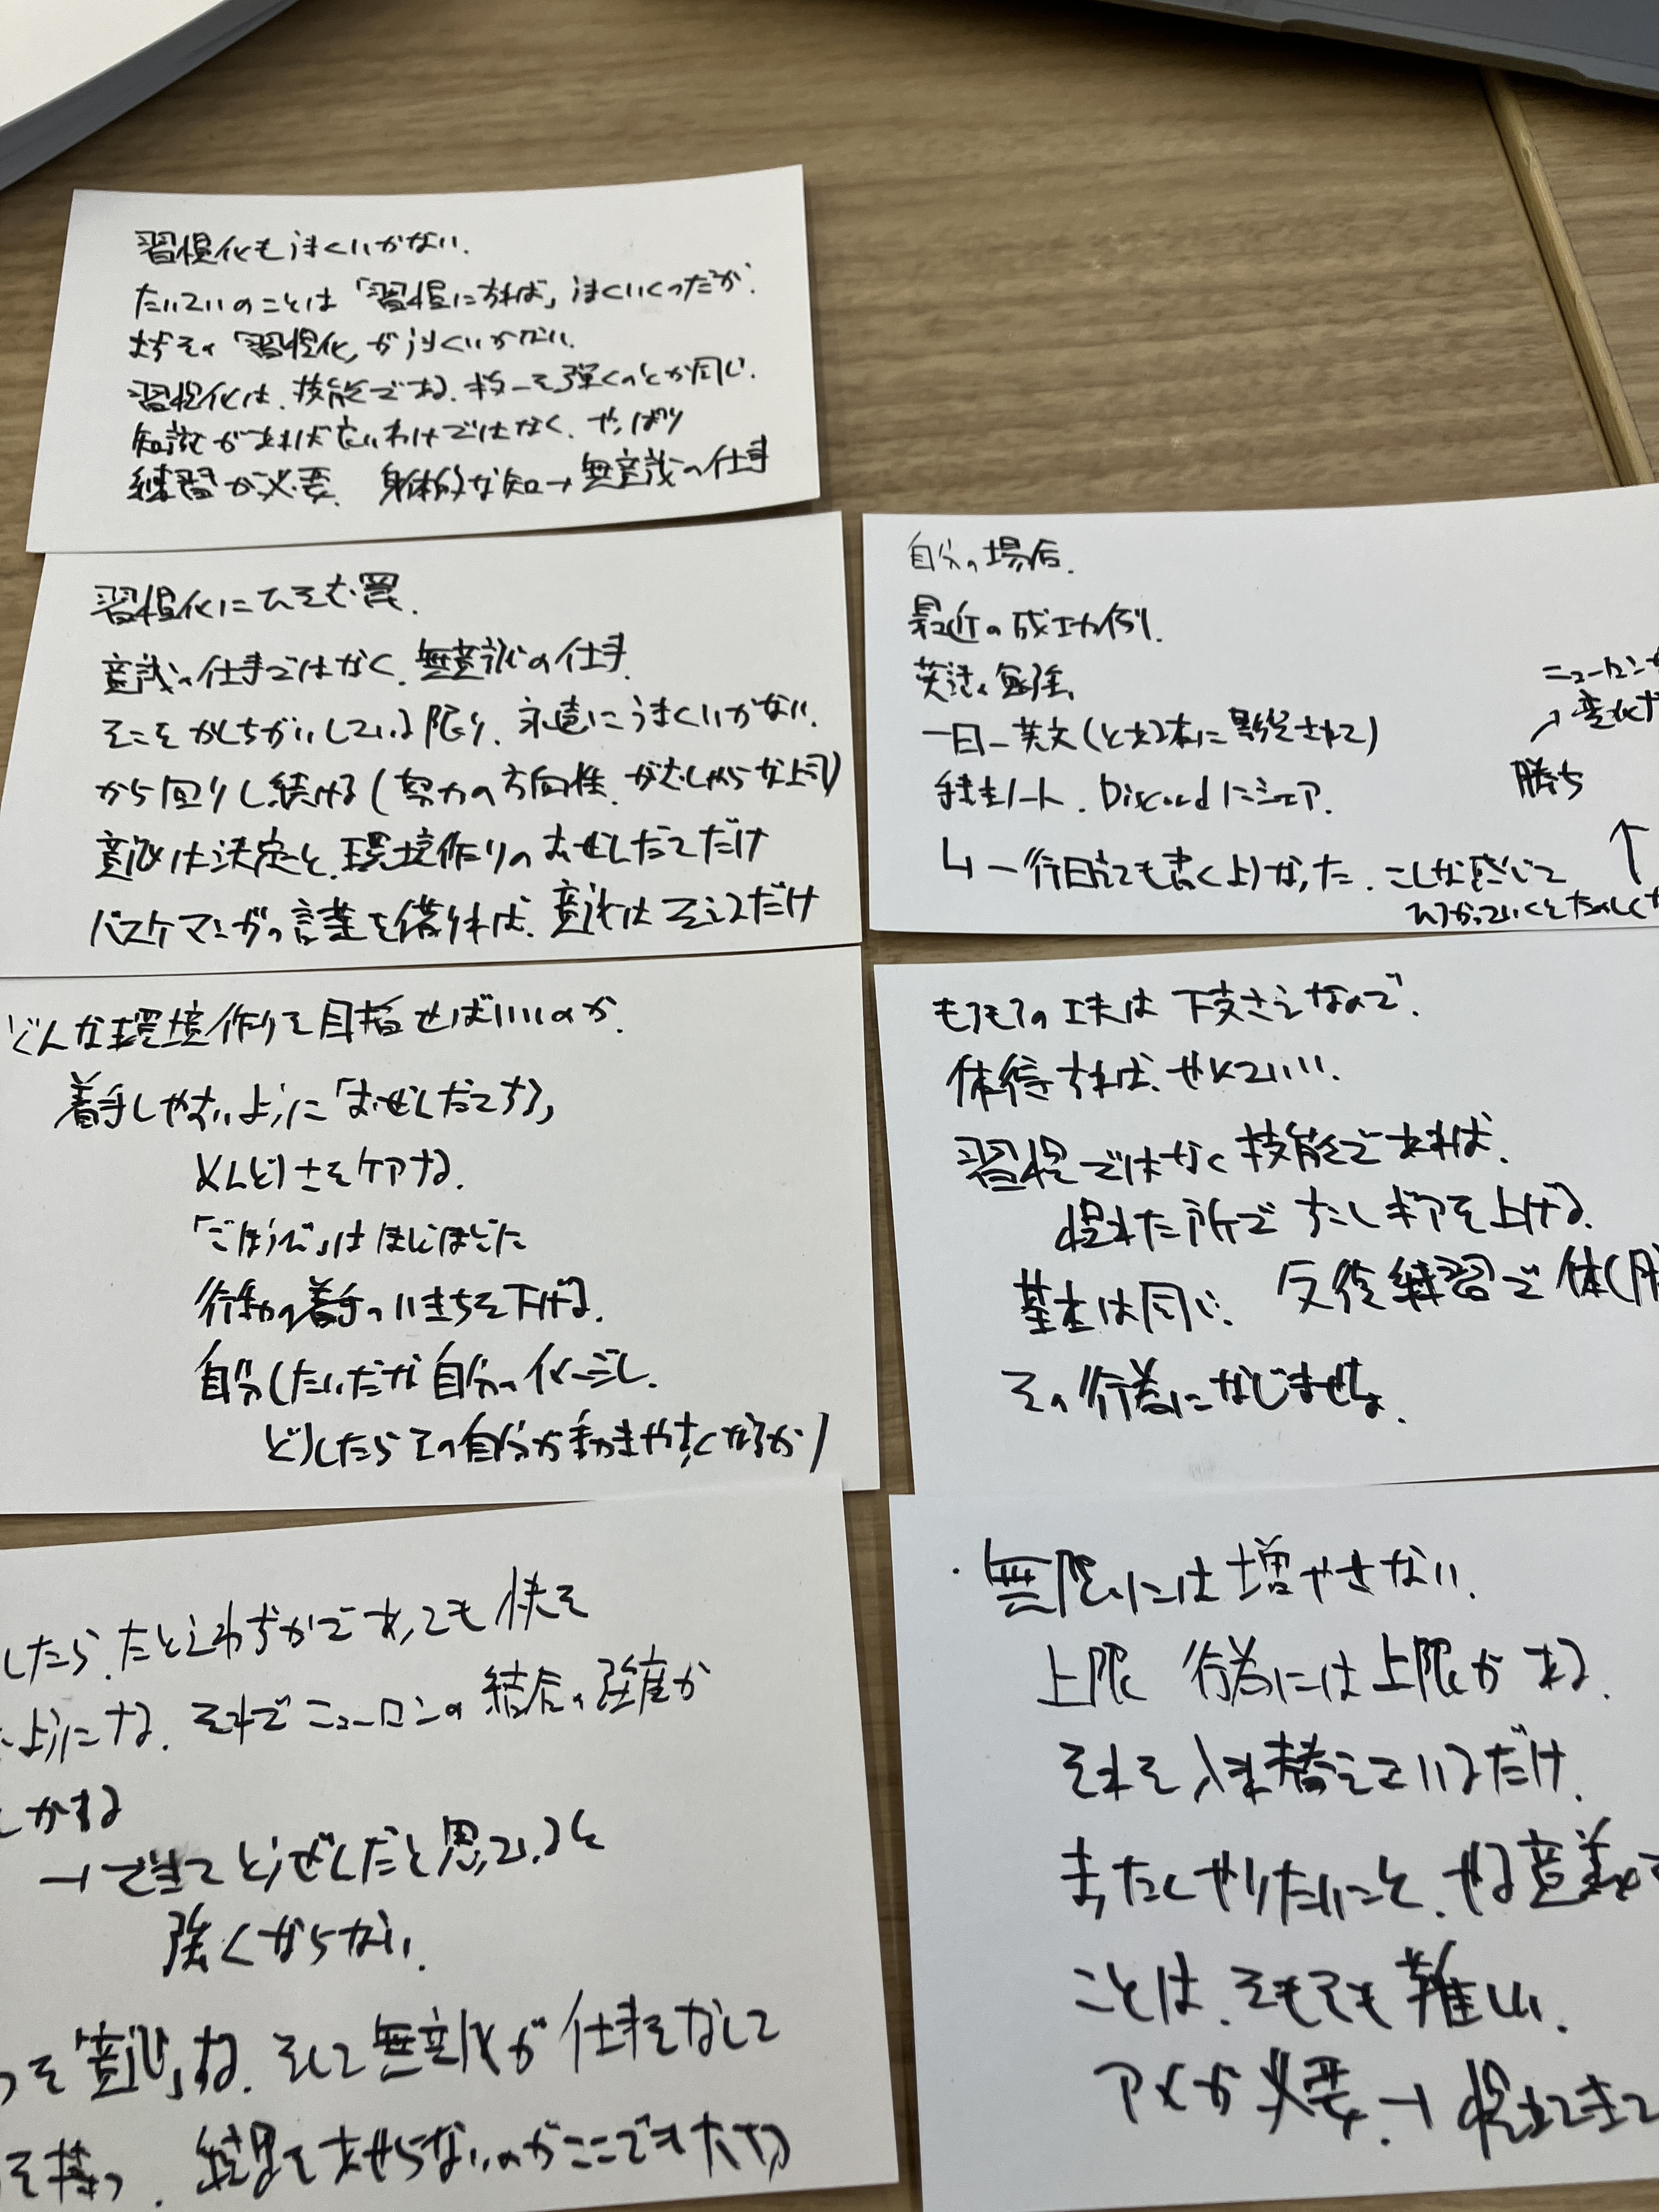 習慣化もうまくいかない.
たいていのことは「習慣にすれば」うまくいくったが.
まずその「習慣化」がうまくいかない.
習慣化は、技能である. を弾くのとか同じ.
知識があれば良いわけではなく、やっぱり
練習が必要. 身体的な知→無意識の仕事
習慣化にひそむ罠.
意識の仕事ではなく、無意識の仕事.
そこをかんちがいしている限り、永遠にうまくいかない.
から回りし続ける(努力の方向性. がむしゃらな上司)
意識は決定と、環境作りのおぜんだてだけ
バスケマンガの言葉を借りれば、意識はそえるだけ
どんな環境作りを目指せばいいのか.
着手しやすいように「おぜんだてする」
めんどうさをケアする.
「ごほうび」はほどほどに
行動の着手のいきちを下げる.
自分しだいだが自分のイメージし.
どうしたらその自分が動きやすくなるか)
したら、たとえわずかであっても快を
ようにする. それでニューロンの結合の強度が
かする
→できてとうぜんだと思っていると
強くならない.
を「意識」する. そして無意識が仕事をなして
を持つ. 結果をあせらないのがここでも大切
自分の場合.
最近の成功例.
英語の勉強.
一日一英文(とある本に影響されて)
手書きノート. Discordにシェア.
↳一行日記も書くようなった. こんな感じで
ひろがっていくとたのしく
↑
勝ち
↗変化
ニューロンが
もろもろの工夫は下支えなので.
体得すれば、やめていい.
習慣ではなく技能であれば.
慣れた所で少しギアを上げる.
基本は同じ. 反復練習で体(
その行為になじませる.
・無限には増やせない.
上限 行為には上限がある.
それを入れ替えているだけ.
まったくやりたいこと、やる意義の
ことは、そもそも難しい.
アメが必要.→慣れてきて